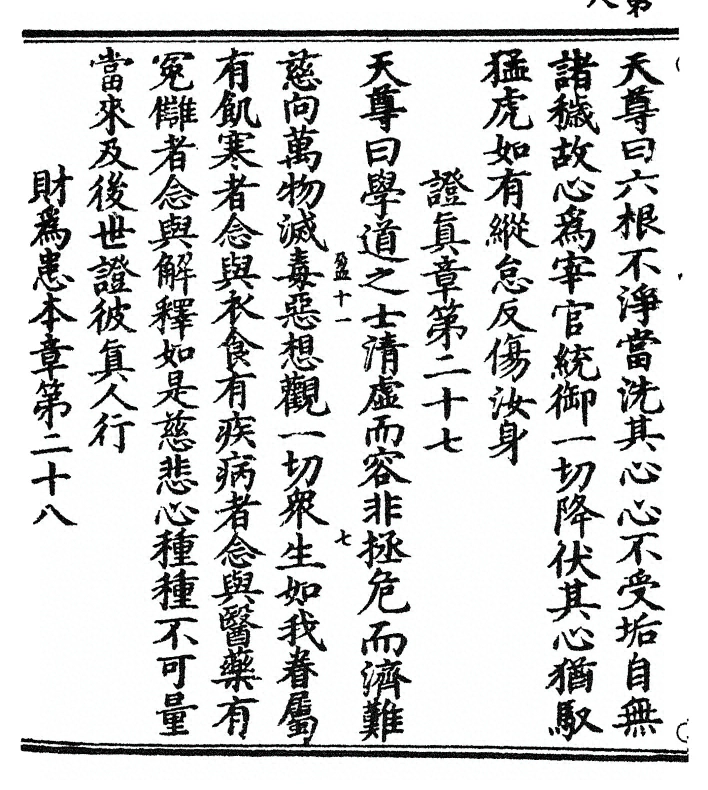 天尊曰六根不淨當洗其心心不受垢自無
諸穢故心爲宰官統御一切降伏其心猶馭
猛虎如有縱怠反傷汝身
證眞章第二十七
天尊曰學道之士清虛而容非拯危而濟難
十一
七
慈向萬物滅毒惡想觀一切衆生如我眷屬
有飢寒者念與衣食有疾病者念與醫藥有
冤讎者念與解釋如是慈悲心種種不可量
當來及後世證彼眞人行
財爲患本章第二十八